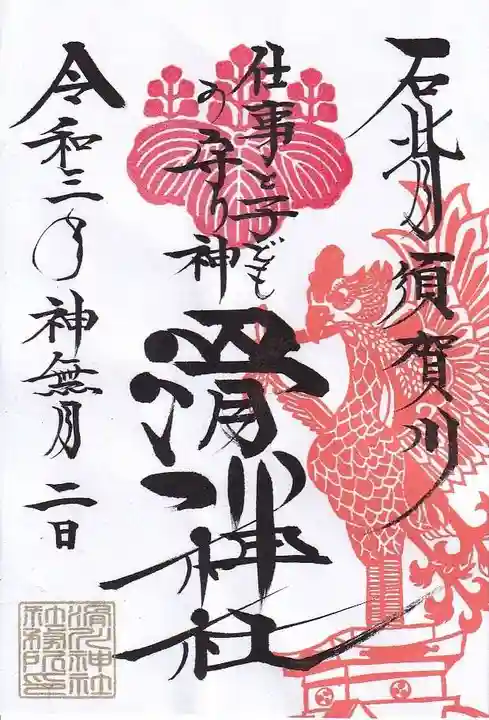 石背須賀川
仕事と子ども
の守り神
滑川神社
令和三年神無月二日
滑川神社
社務所印